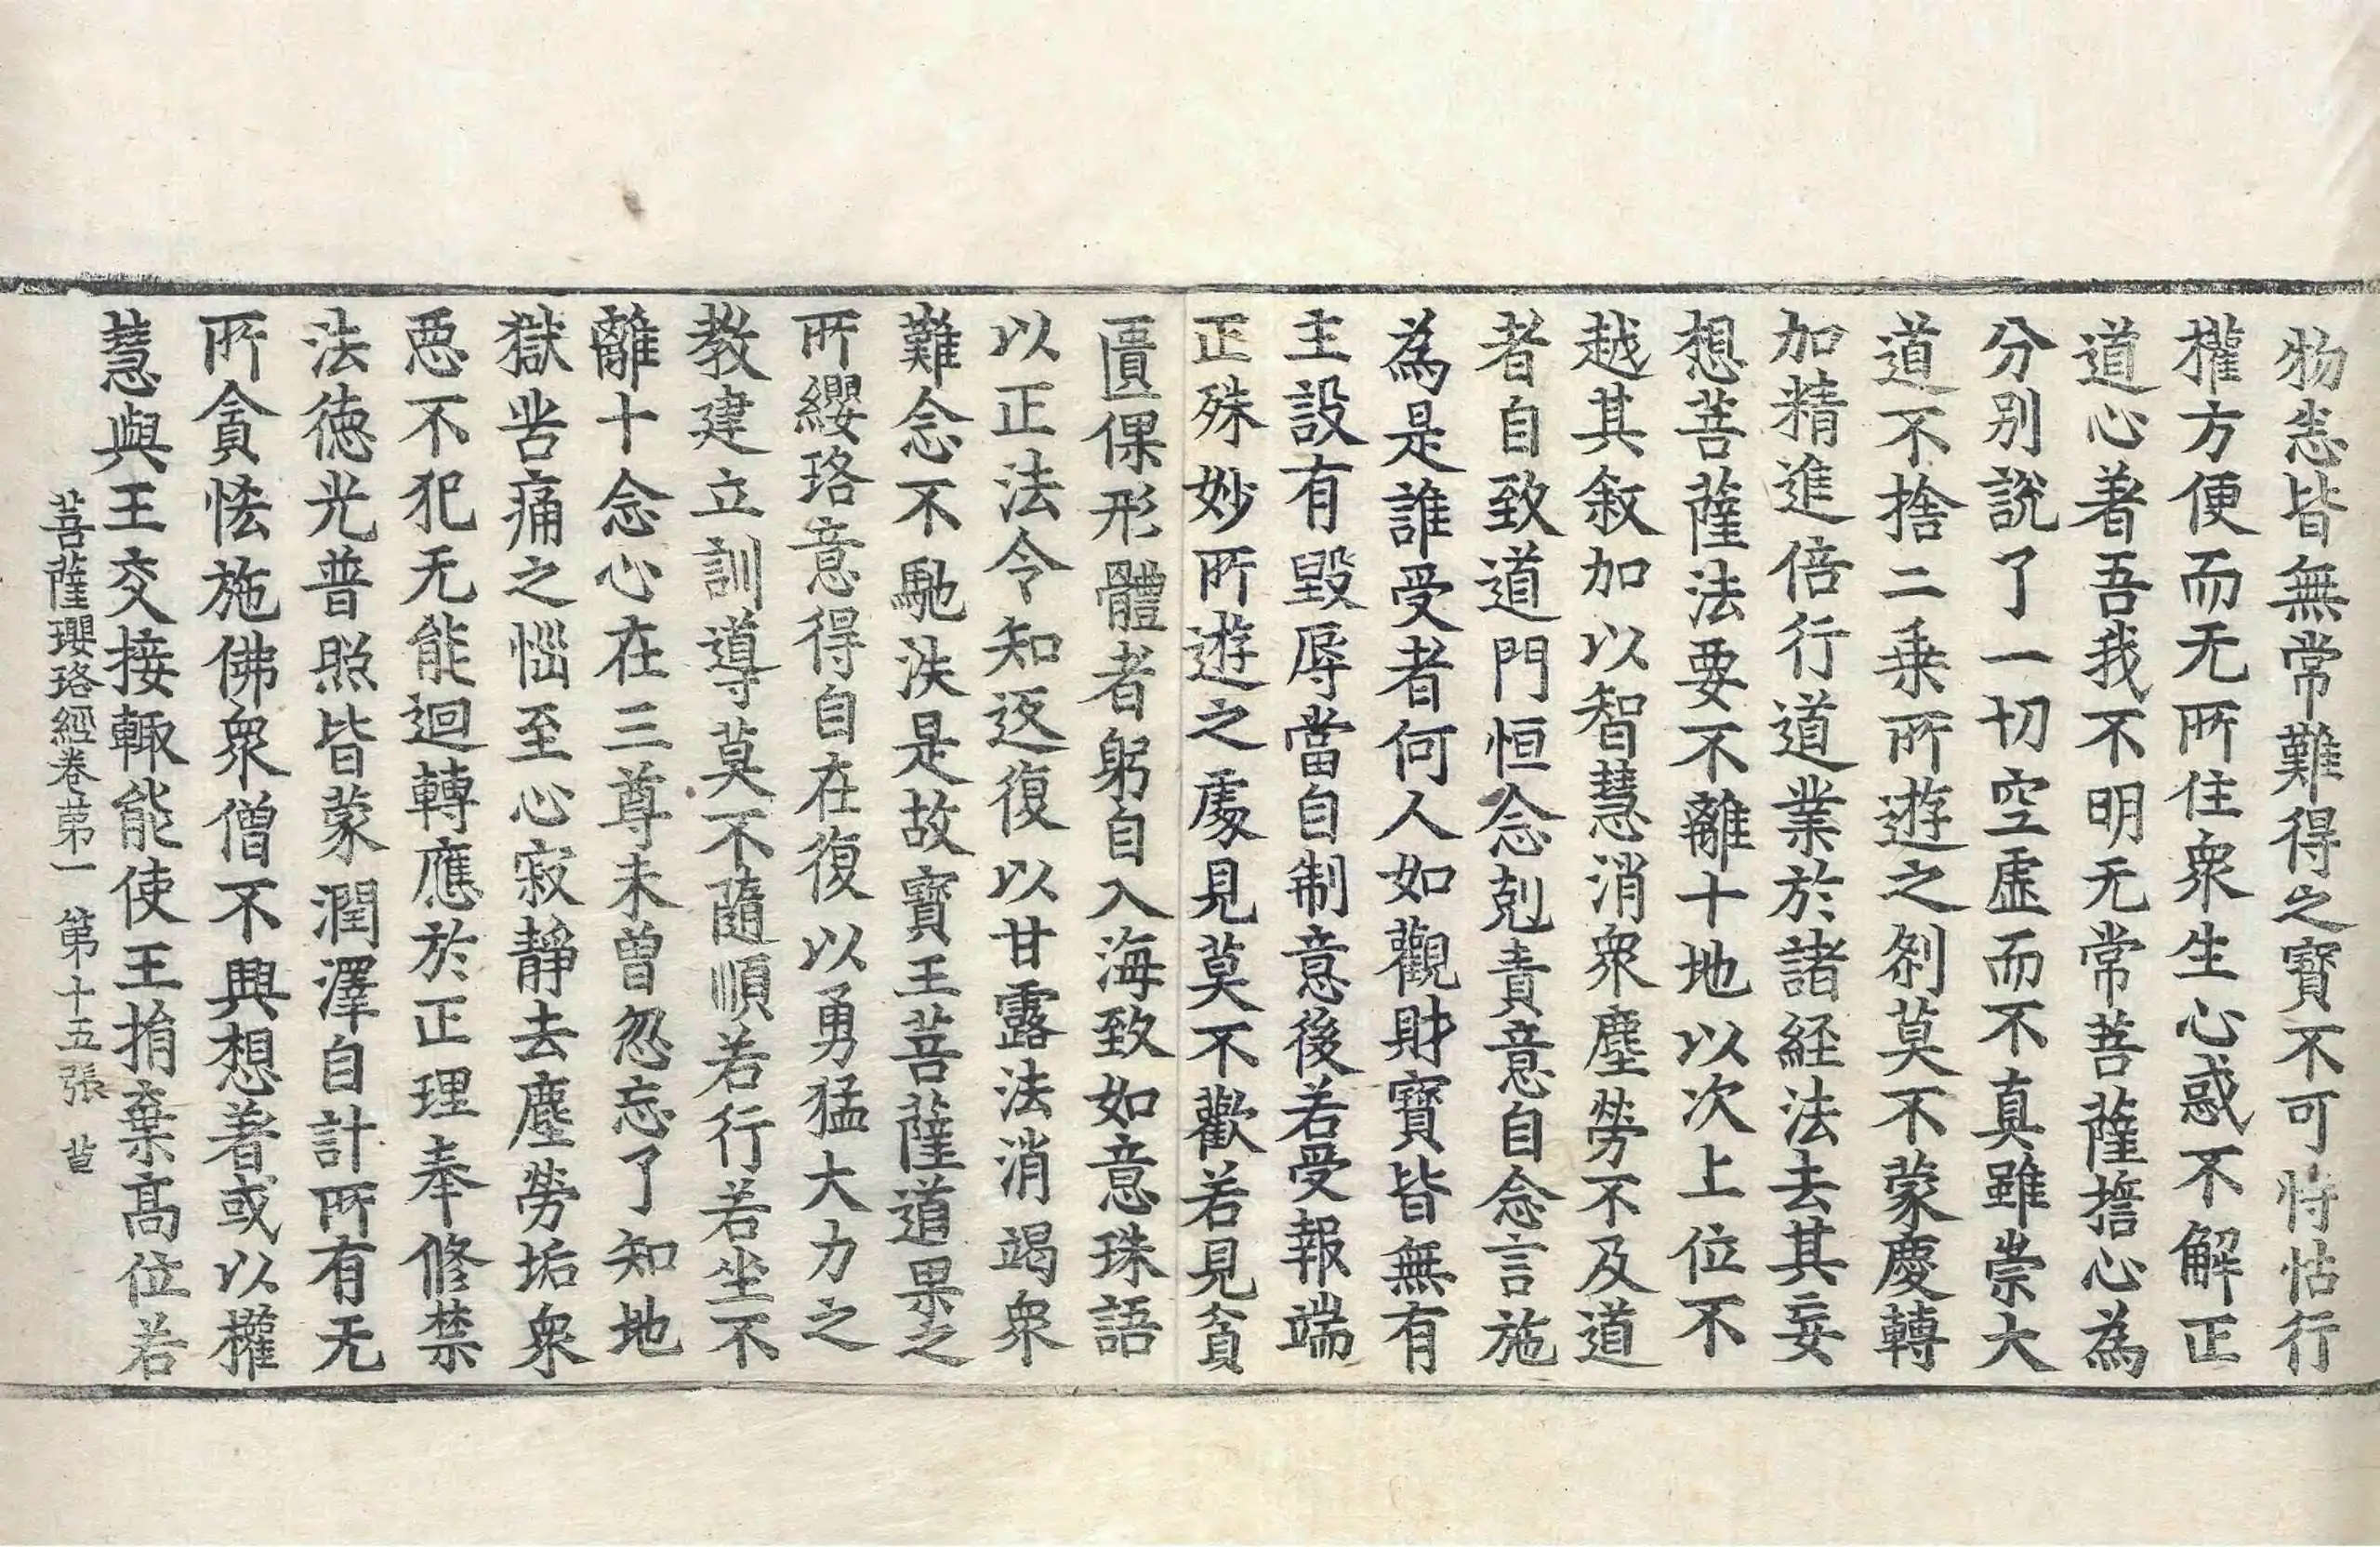 物恙皆無常難得之寶不可恃怙行
權方便而无所住衆生心惑不解正
道心著吾我不明无常菩薩擔心為
分別說了一切空虛而不真雖崇大
道不捨二乗所遊之刹莫不蒙慶轉
加精進倍行道業於諸経法去其妄
想菩薩法要不離十地以次上位不
越其敘加以智慧消衆塵勞不及道
者自致道門恒念剋責意自念言施
為是誰受者何人如觀財寶皆無有
主設有毀辱當自制意後若受報端
正殊妙所遊之處見莫不歡若見貧
匱倮形體者躬自入海致如意珠語
以正法令知返復以甘露法消竭衆
難念不馳泆是故寶王菩薩道果之
所纓珞意得自在復以勇猛大力之
教建立訓導莫不隨順若行若坐不
離十念心在三尊未曾忽忘了知地
獄苦痛之惱至心寂靜去塵勞垢衆
惡不犯无能迴轉應於正理奉修禁
法德光普照皆蒙潤澤自計所有无
所貪恡施佛衆僧不興想著或以權
慧與王交接輙能使王捐棄髙位若
菩薩瓔珞經卷苐一 第十五張